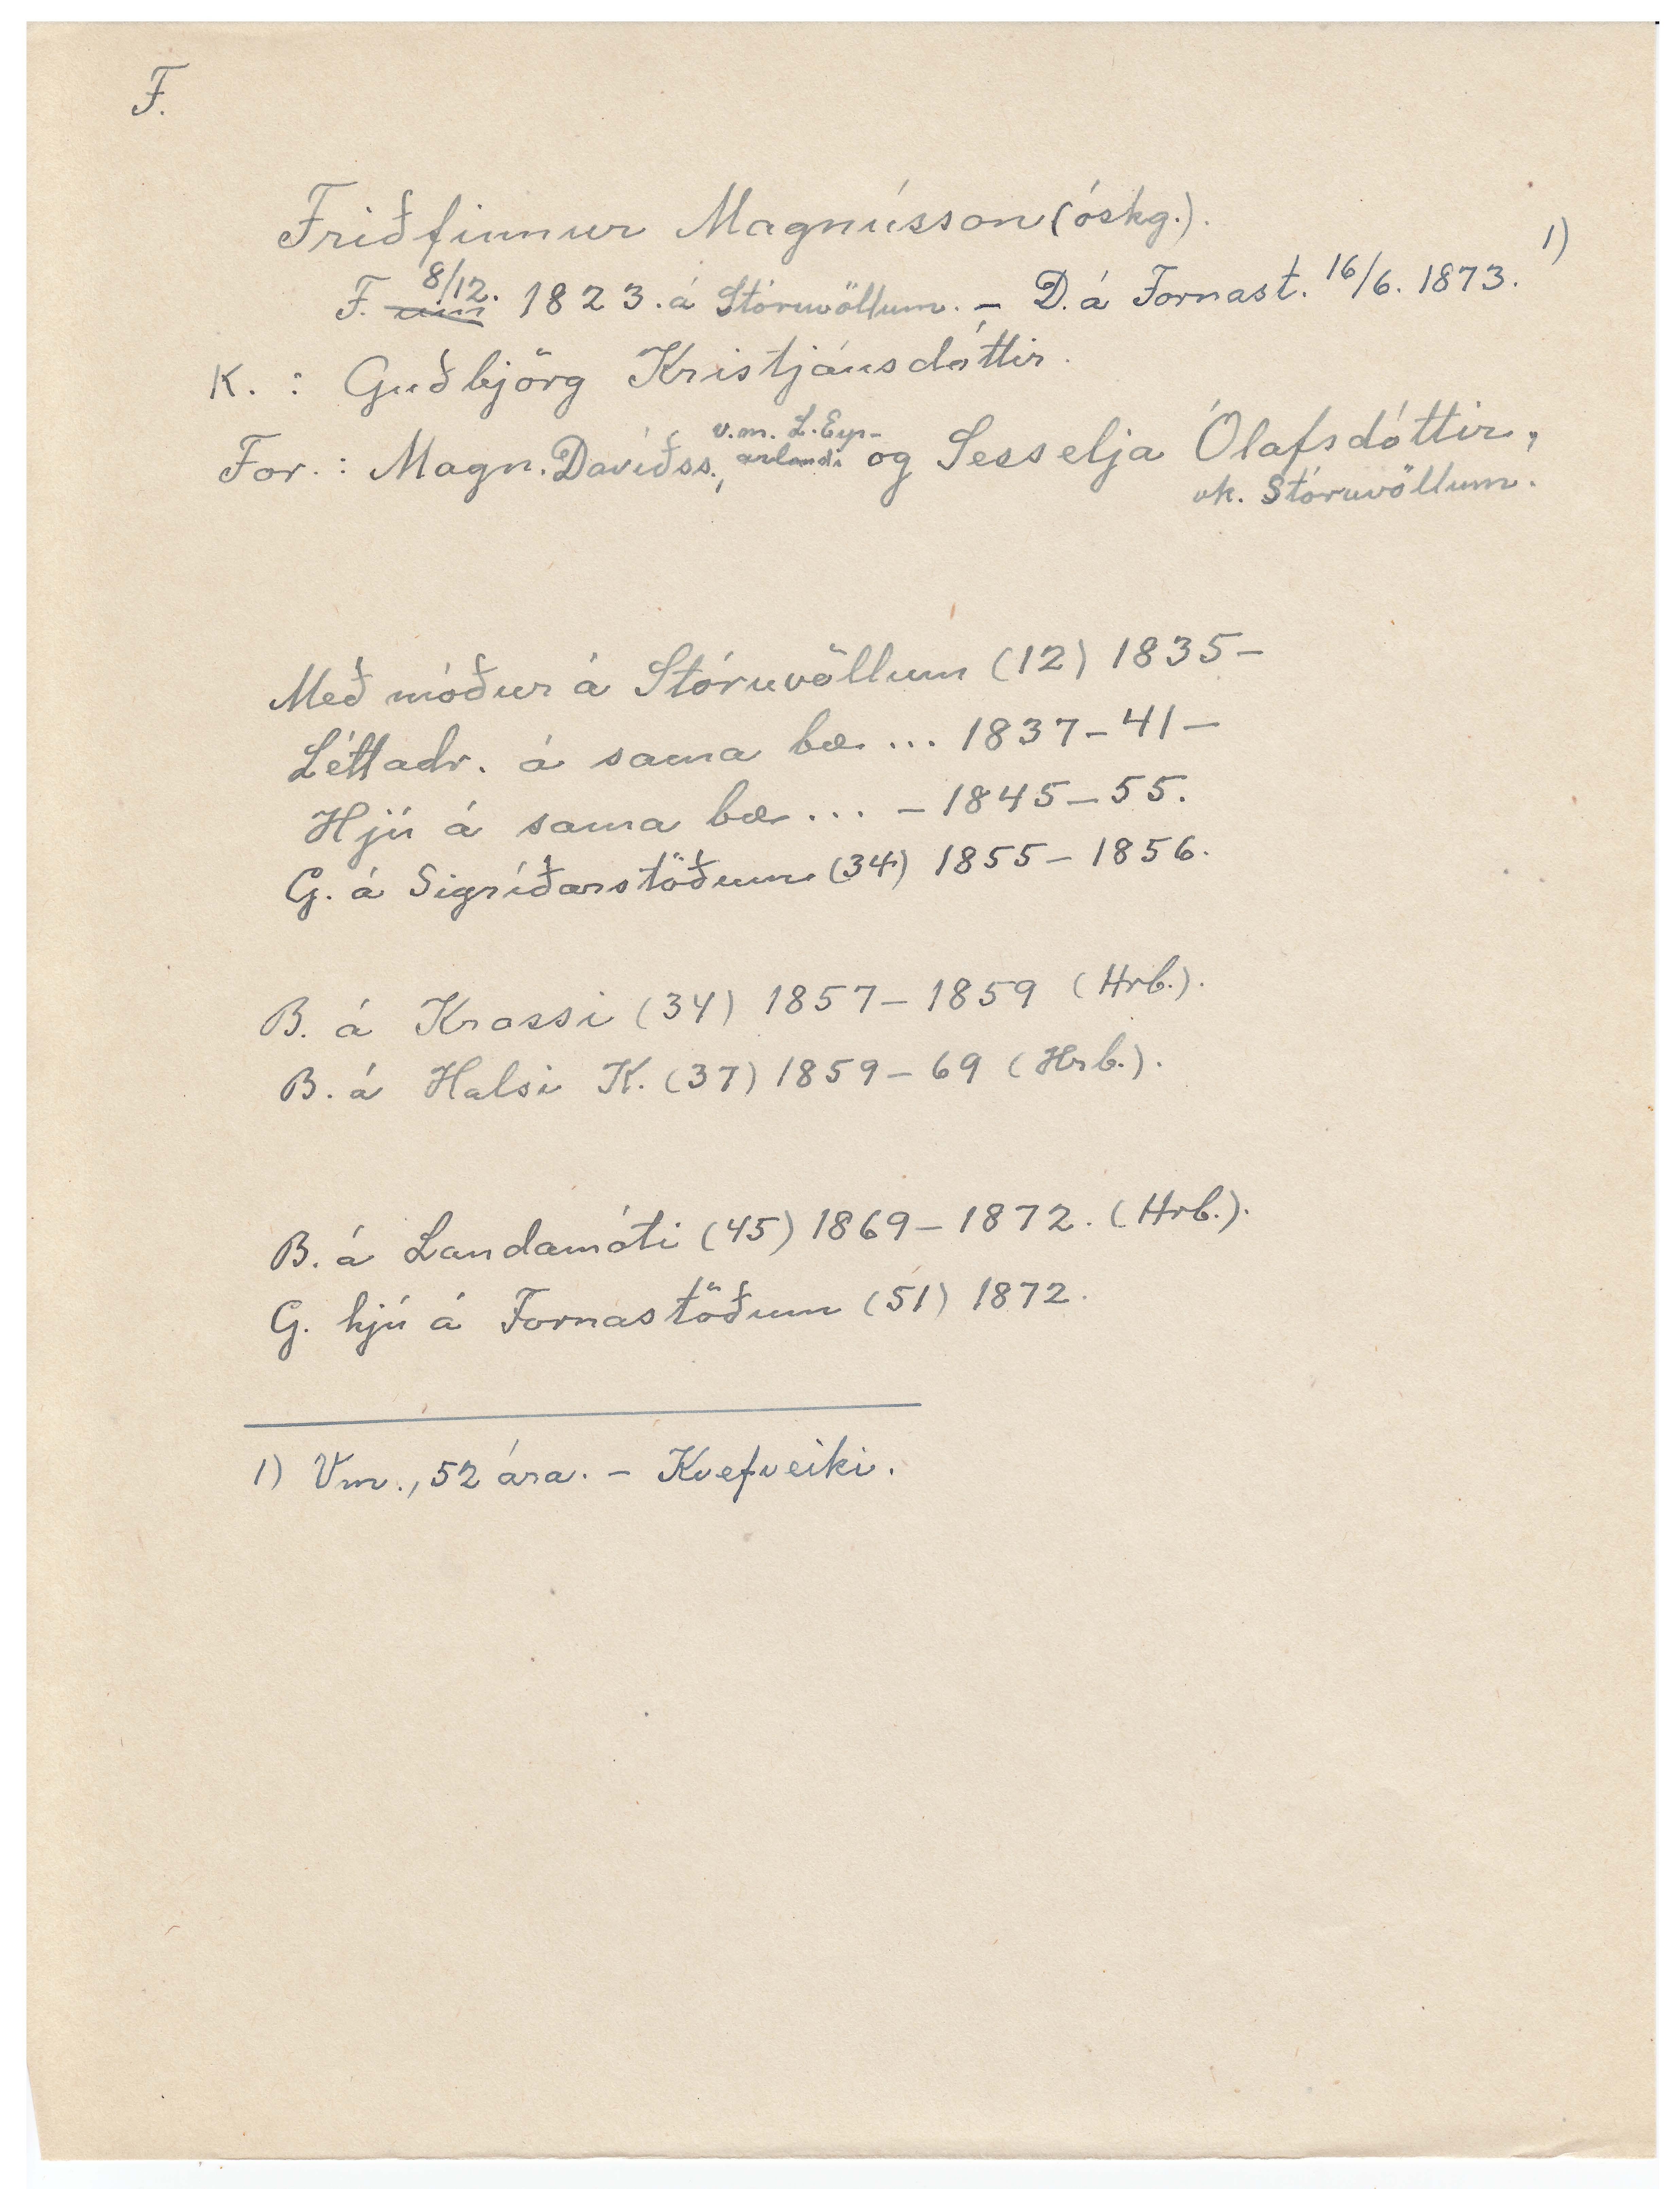 F.
Friðfinnur Magnússon (óskg.).
F. um 8/12. 1823. á Stóruvöllum. – D. á Fornast. 16/6. 1873. 1)
K. : Guðbjörg Kristjánsdóttir.
For. : Magn. Davíðss., v.m. L. Eyrarlandi og Sesselja Ólafsdóttir,
vk. Stóruvöllum.
Með móður á Stóruvöllum (12) 1835 –
Léttadr. á sama bæ ... 1837 – 41 –
Hjú á sama bæ ... – 1845 – 55.
G. á Sigríðarstöðum (34) 1855 – 1856.
B. á Krossi (34) 1857 – 1859 (Hrb.).
B. á Halsi K. (37) 1859 – 69 (Hrb.).
B. á Landamóti (45) 1869 – 1872. (Hrb.).
G. hjú á Fornastöðum (51) 1872.
1) Vm., 52 ára. – Kvefveiki.